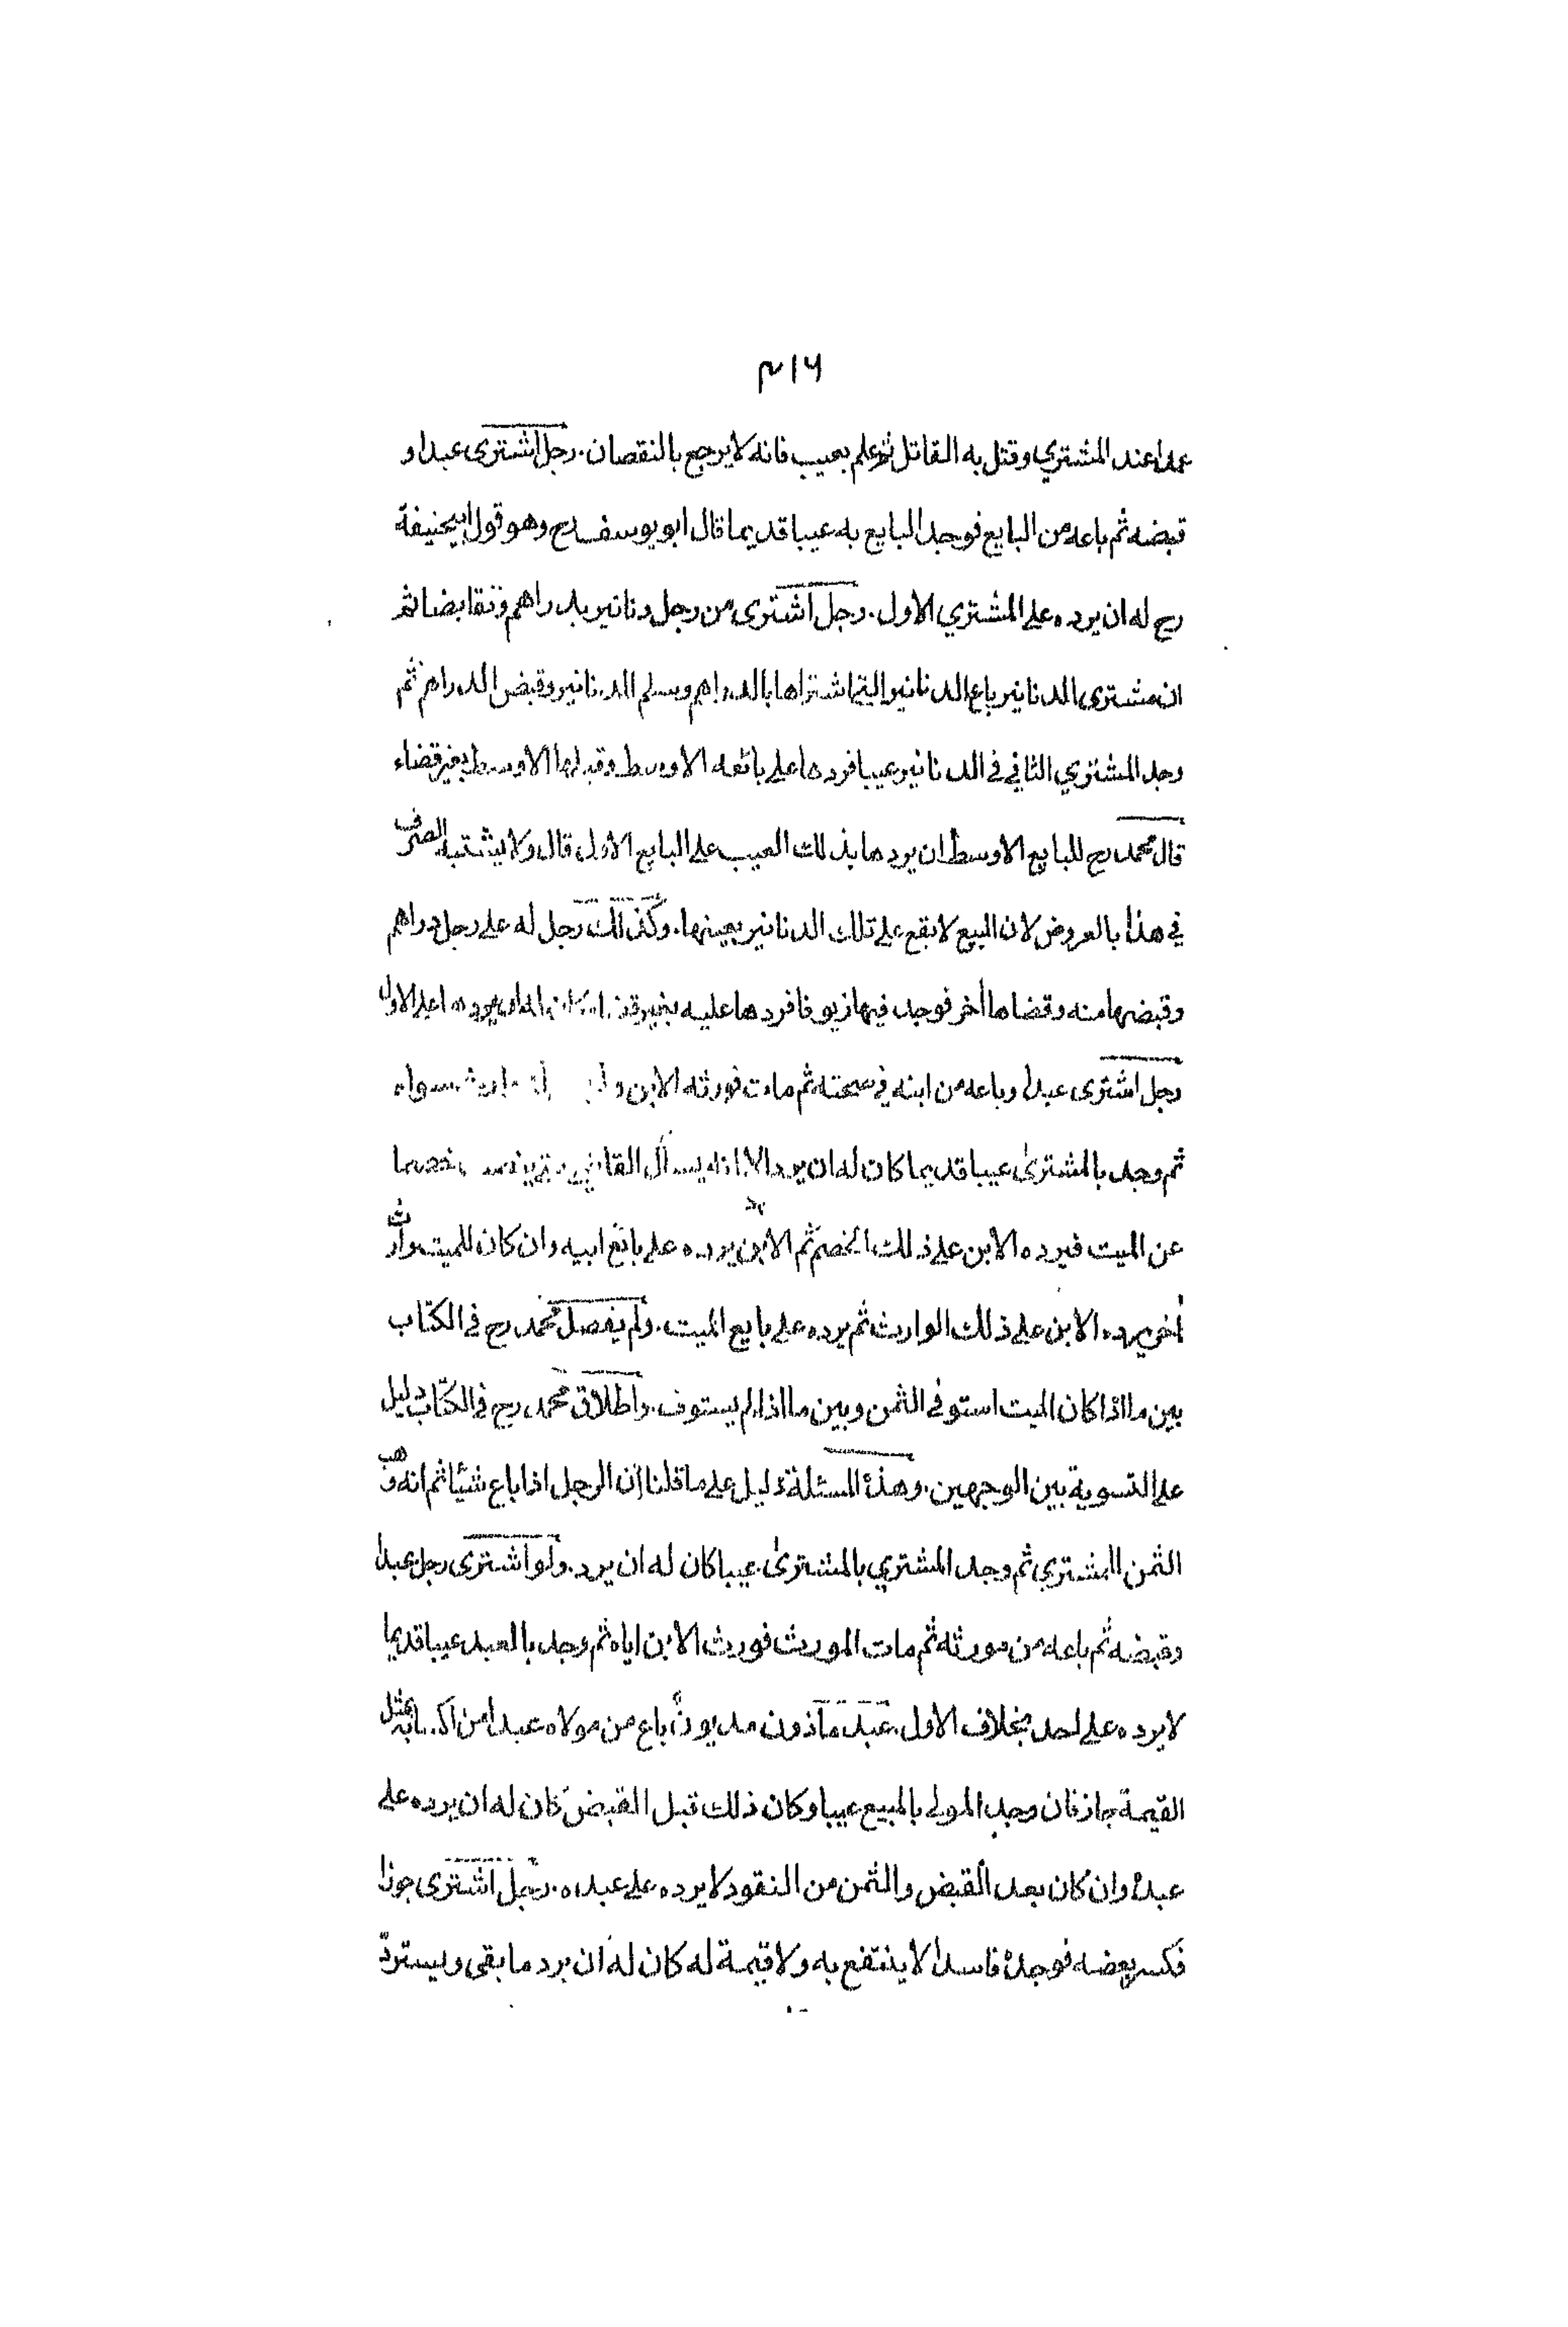 ٣١٦
عمدا عند المشتري وقتل به القاتل ثم علم بعيب فانه لا يرجع بالنقصان. رجل اشترى عبدا و
قبضه ثم باعه من البايع فوجد البايع به عيبا قديما قال ابو يوسف رح وهو قول ابيحنيفة
رح له ان يرده على المشتري الاول. رجل اشترى من رجل دنانير بدراهم وتقابضا ثم
ان مشترى الدنانير باع الدنانير التي اشتراها بالدراهم وسلم الدنانير وقبض الدراهم ثم
وجد المشتري الثاني في الدنانير عيبا فردها على بائعه الاوسط وقبلها الاوسط بغير قضاء
قال محمد رح للبايع الاوسط ان يردها بذلك العيب على البايع الاول قال ولا يشتبه الصرف
في هذا بالعروض لان البيع لا يقع على تلك الدنانير بعينها. وكذلك رجل له على رجل دراهم
وقبضها منه وقضاها أخر فوجد فيها زيوفا فردها عليه بغير قضاء كان له ان يردها على الاول
رجل اشترى عبدا وباعه من ابنه في صحته ثم مات فورثه الابن وارث سواه
ثم وجد بالمشترى عيبا قديما كان له ان يرد الا انه يسأل القاضي خصما
عن الميت فيرده الابن على ذلك الخصم ثم الابن يرده على بائع ابيه وان كان للميت وارث
أخر يرده الابن على ذلك الوارث ثم يرده على بايع الميت. ولم يفصل محمد رح في الكتاب
بين ما اذا كان الميت استوفى الثمن وبين ما اذا لم يستوف. واطلاق محمد رح في الكتاب دليل
على التسوية بين الوجهين. وهذه المسئلة دليل على ما قلنا أن الرجل اذا باع شيئا ثم انه وهب
الثمن المشتري ثم وجد المشتري بالمشترى عيبا كان له ان يرد. ولو اشترى رجل عبدا
وقبضه ثم باعه من مورثه ثم مات المورث فورث الابن اياه ثم وجد بالعبد عيبا قديما
لا يرده على احد بخلاف الاول. عبد مأذون مديون باع من مولاه عبدا من اكسابه بمثل
القيمة جاز فان وجد المولى بالمبيع عيبا وكان ذلك قبل القبض كان له ان يرده على
عبده وان كان بعد القبض والثمن من النقود لا يرده على عبده. رجل اشترى جوزا
فكسر بعضه فوجده فاسدا لا ينتفع به ولا قيمة له كان له ان يرد ما بقى ويستردّ